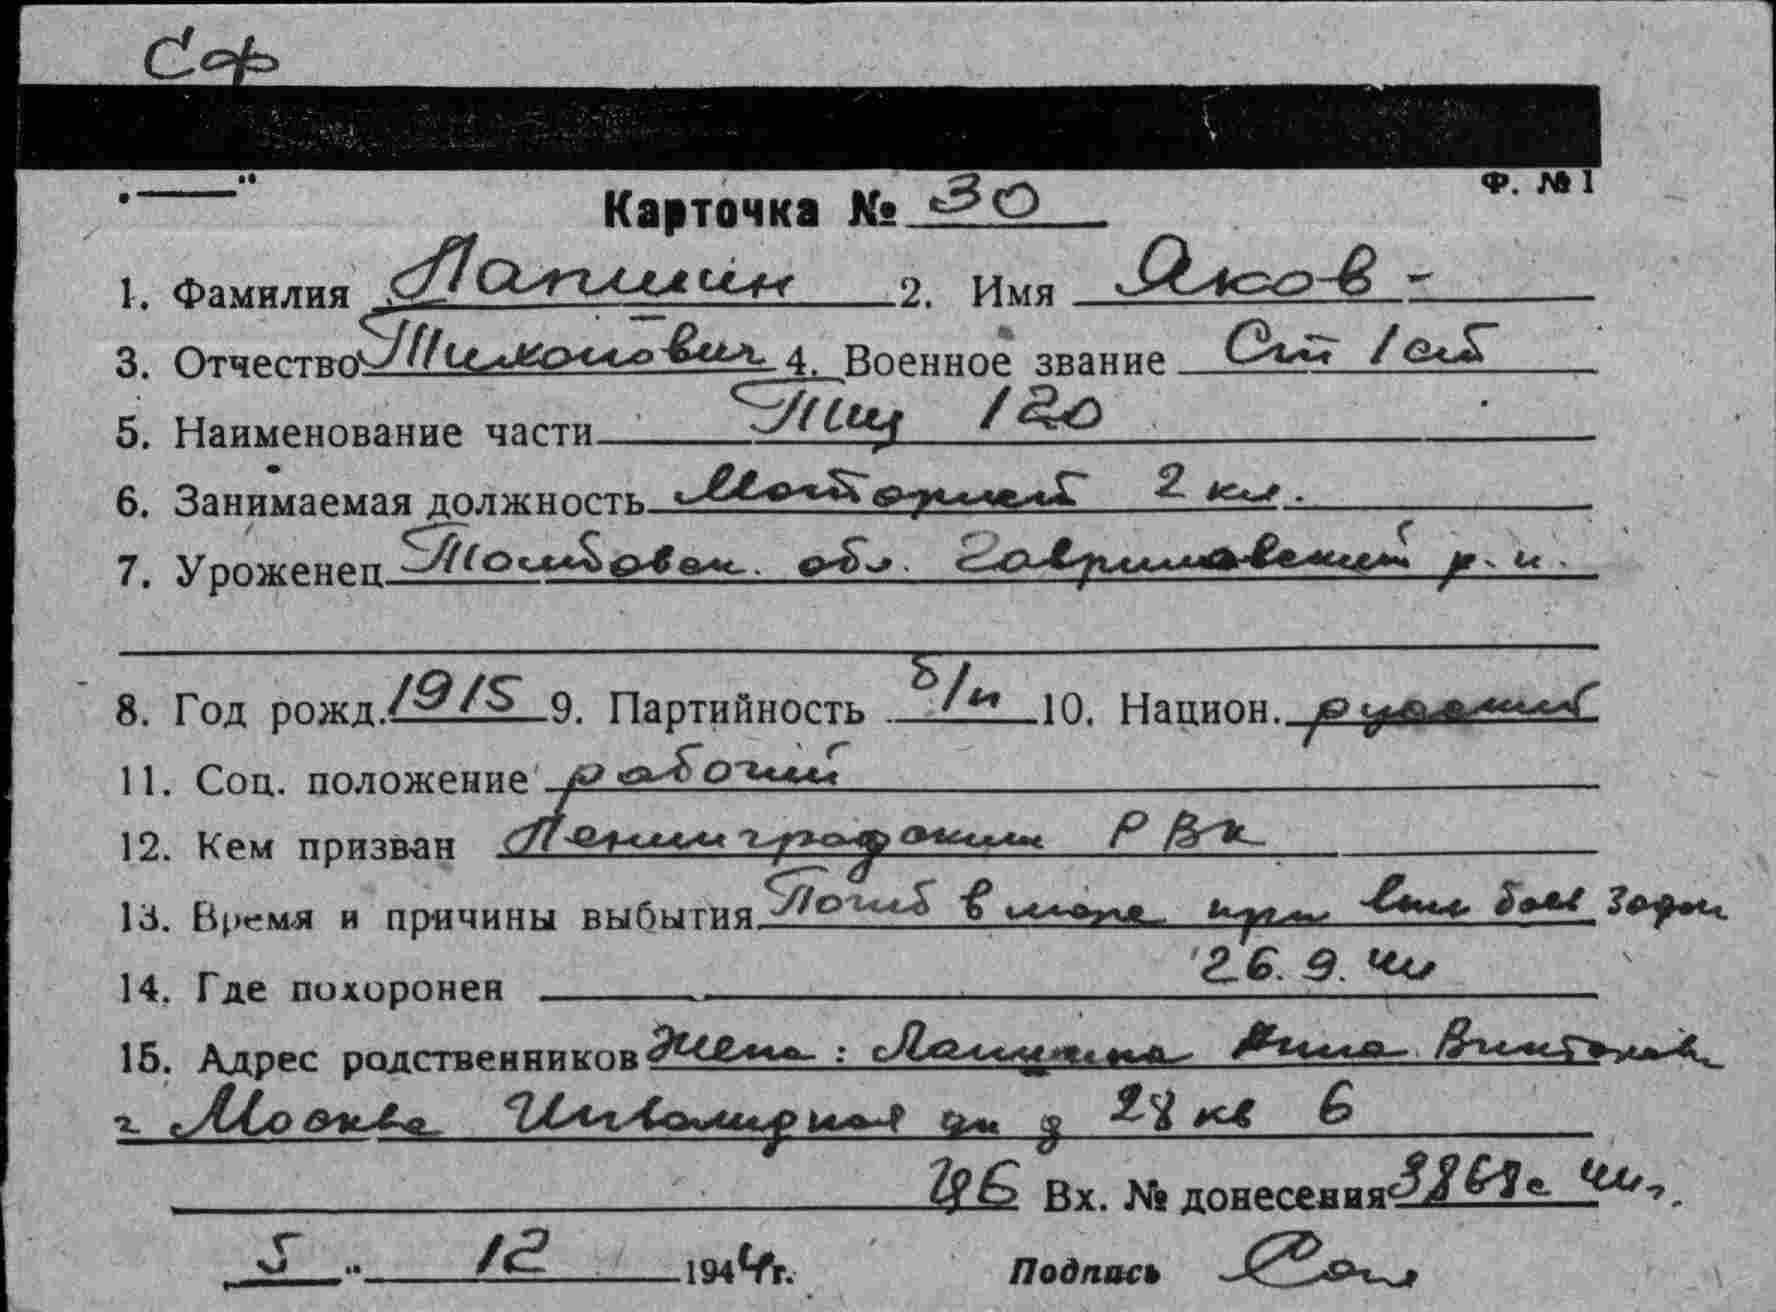 Сф
Ф. №1
Карточка № 30
1. Фамилия Лапшин 2. Имя Яков -
3. Отчество Тихонович 4. Военное звание Ст 1 ст
5. Наименование части Тщ 120
6. Занимаемая должность Моторист 2 кл.
7. Уроженец Тамбовск. обл. Гавриловский р-н.
8. Год рожд. 1915 9. Партийность б/п 10. Национ. русский
11. Соц. положение рабочий
12. Кем призван Ленинградским РВК
13. Время и причины выбытия Погиб в море при вып боев задан
26.9.44
14. Где похоронен
15. Адрес родственников Жена: Лапшина Анна Викторов
г Москва Инвалидная ул д 28 кв 6
Вх. № донесения 3868с 44г.
5 " 12 1944г. Подпись